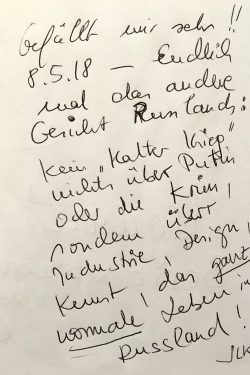 Gefällt mir sehr!!
8.5.18 – Endlich
mal das andere
Gesicht Russlands:
Kein „Kalter Krieg"
nichts über Putin
oder die Krim,
sondern über
Industrie, Design,
Kunst, das ganz
normale Leben in
Russland!